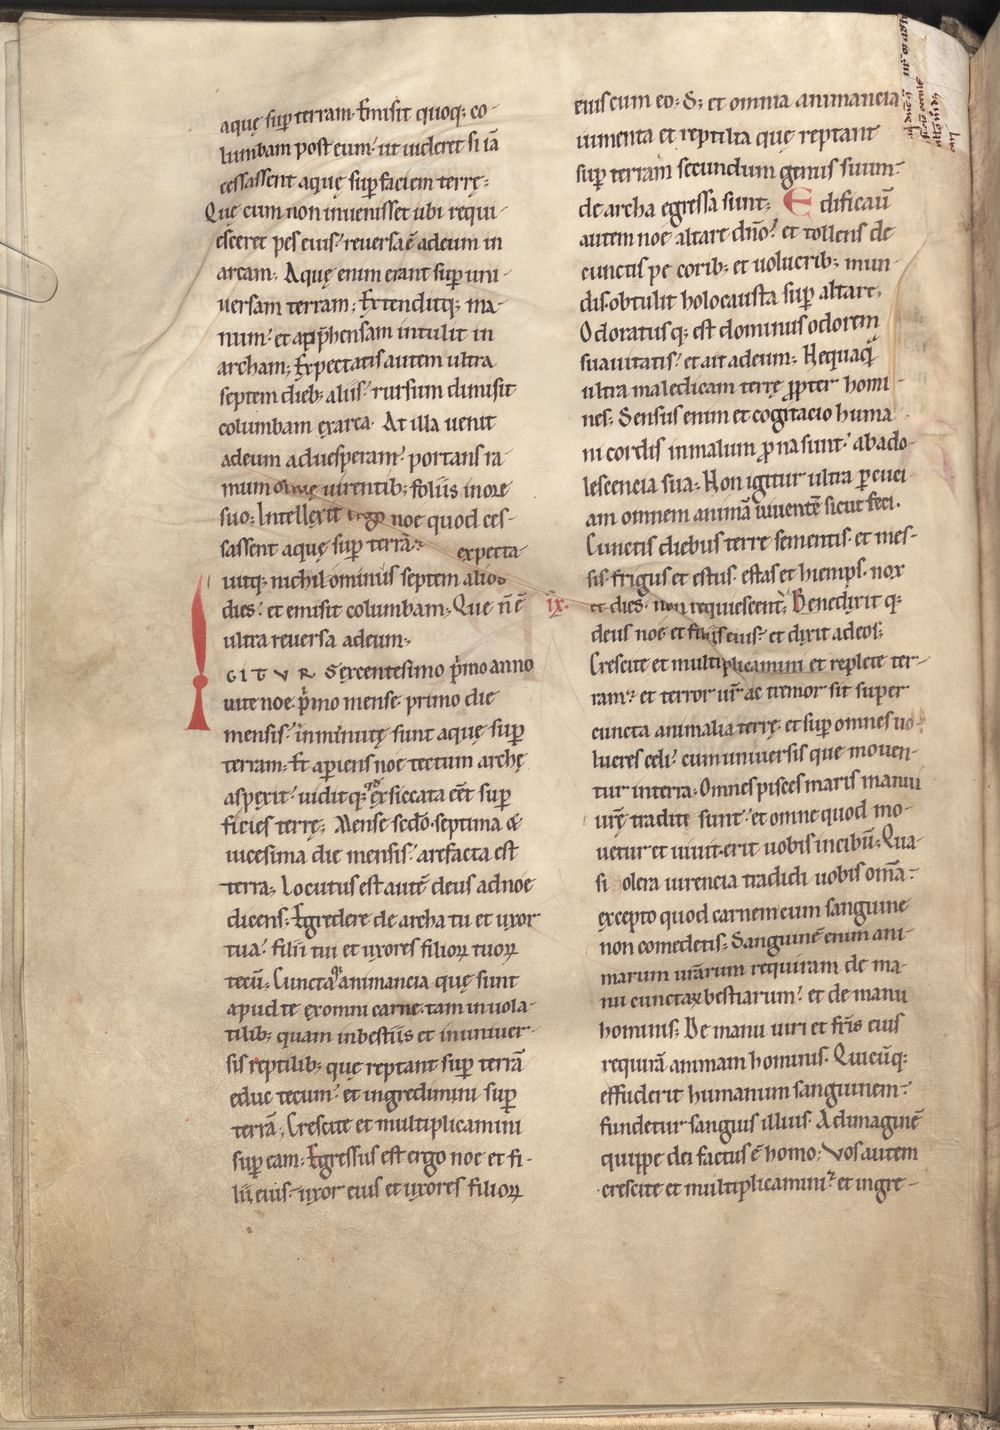 aquę sup̄ terram. Emisit quoq; co-
lumbam post eum. ut uideret si iā
cessassent aquę sup̄ faciem terrę;
Quę cum non inuenisset ubi requi-
esceret pes eius. reuersa ē ad eum in
arcam; Aquę enim erant sup̄ uni-
uersam terram; Extenditq; ma-
num. et app̄hensam intulit in
archam; Expectatis autem ultra
septem dieb; aliis. rursum dimisit
columbam ex arca. At illa uenit
ad eum ad uesperam. portans ra-
mum oliuę uirentib; foliis in ore
suo; Intellexit ergo noe quod ces-
sassent aquę sup̄ terrā; expecta-
uitq; nichilominus septem alios
dies. et emisit columbam; Que n̄ ē
ultra reuersa ad eum;
IGITVR Sexcentesimo p̄mo anno
uite noe. p̄mo mense. primo die
mensis. inminutę sunt aquę sup̄
terram. Et aperiens noe tectum archę
aspexit. uiditq; qđ exsiccata eēt sup̄
ficies terrę; Mense sedō. septima &
uicesima die mensis. arefacta est
terra; Locutus est autē deus ad noe
dicens; Egredere de archa tu et uxor
tua. filii tui et uxores filioꝝ tuoꝝ
tecū; Cuncta animancia quę sunt
apud te ex omni carne. tam in uola-
tilib; quam in bestiis et in uniuer-
sis reptilib; que reptant sup̄ terrā
educ tecum. et ingredimini sup̄
terrā. Crescite et multiplicamini
sup̄ eam; Egressus est ergo noe et fi-
lii eius. uxor eius et uxores filioꝝ
eius cum eo; S; et omnia animancia
iumenta et reptilia quę reptant
sup̄ terram secundum genus suum.
de archa egressa sunt; Edificauī
autem noe altare dn̄o. et tollens de
cunctis pecorib; et uolucrib; mun-
dis. obtulit holocausta sup̄ altare;
Odoratusq; est dominus odorem
suauitatis. et ait ad eum; Nequaq̄
ultra maledicam terrę ꝓpter homi-
nes; Sensus enim et cogitacio huma
ni cordis in malum prona sunt. ab ado-
lescencia sua; Non igitur ultra ꝑcuci
am omnem animā uiuentē sicut feci.
Cunctis diebus terre sementis. et mes-
sis. frigus et estus. estas et hiemps. nox
ix. et dies. non requiescent; Benedixitq;
deus noe et filiis eius. et dixit ad eos;
Crescite et multiplicamini et replete ter-
ram. et terror ur̄. ac tremor sit super
cuncta animalia terrę. et sup̄ omnes uo-
lucres celi. cum uniuersis que mouen-
tur in terra; Omnes pisces maris manui
ur̄ę tradite sunt. et omne quod mo-
uetur et uiuit. erit uobis in cibū; Qua-
si olera uirencia tradidi uobis om̄a.
excepto quod carnem cum sanguine
non comedetis; Sanguinē enim ani-
marum ur̄arum requiram de ma-
nu cunctaꝝ bestiarum. et de manu
hominis; De manu uiri et fr̄is eius
requirā animam hominis. Quicūq;
effuderit humanum sanguinem.
fundetur sanguis illius. Ad imaginē
quippe dei factus ē homo; Vos autem
crescite et multiplicamini. et ingre-